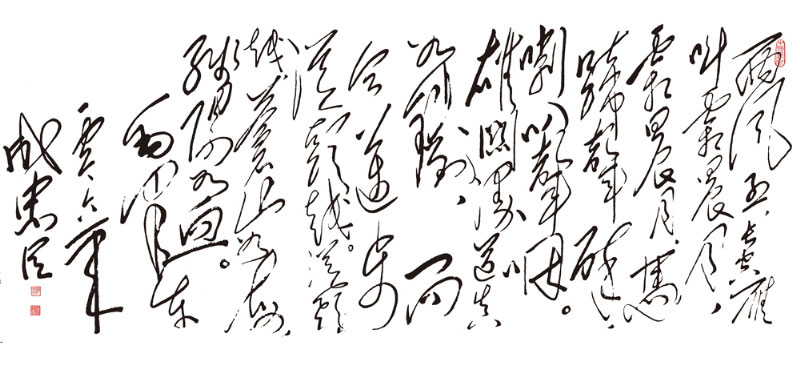 西风烈,长空雁
叫霜晨月,
霜晨月,马
蹄声碎,
喇叭声咽。
雄关漫道真
如铁,而
今迈步
从头越。从头
越,苍山如海,
残阳如血。
成忠臣